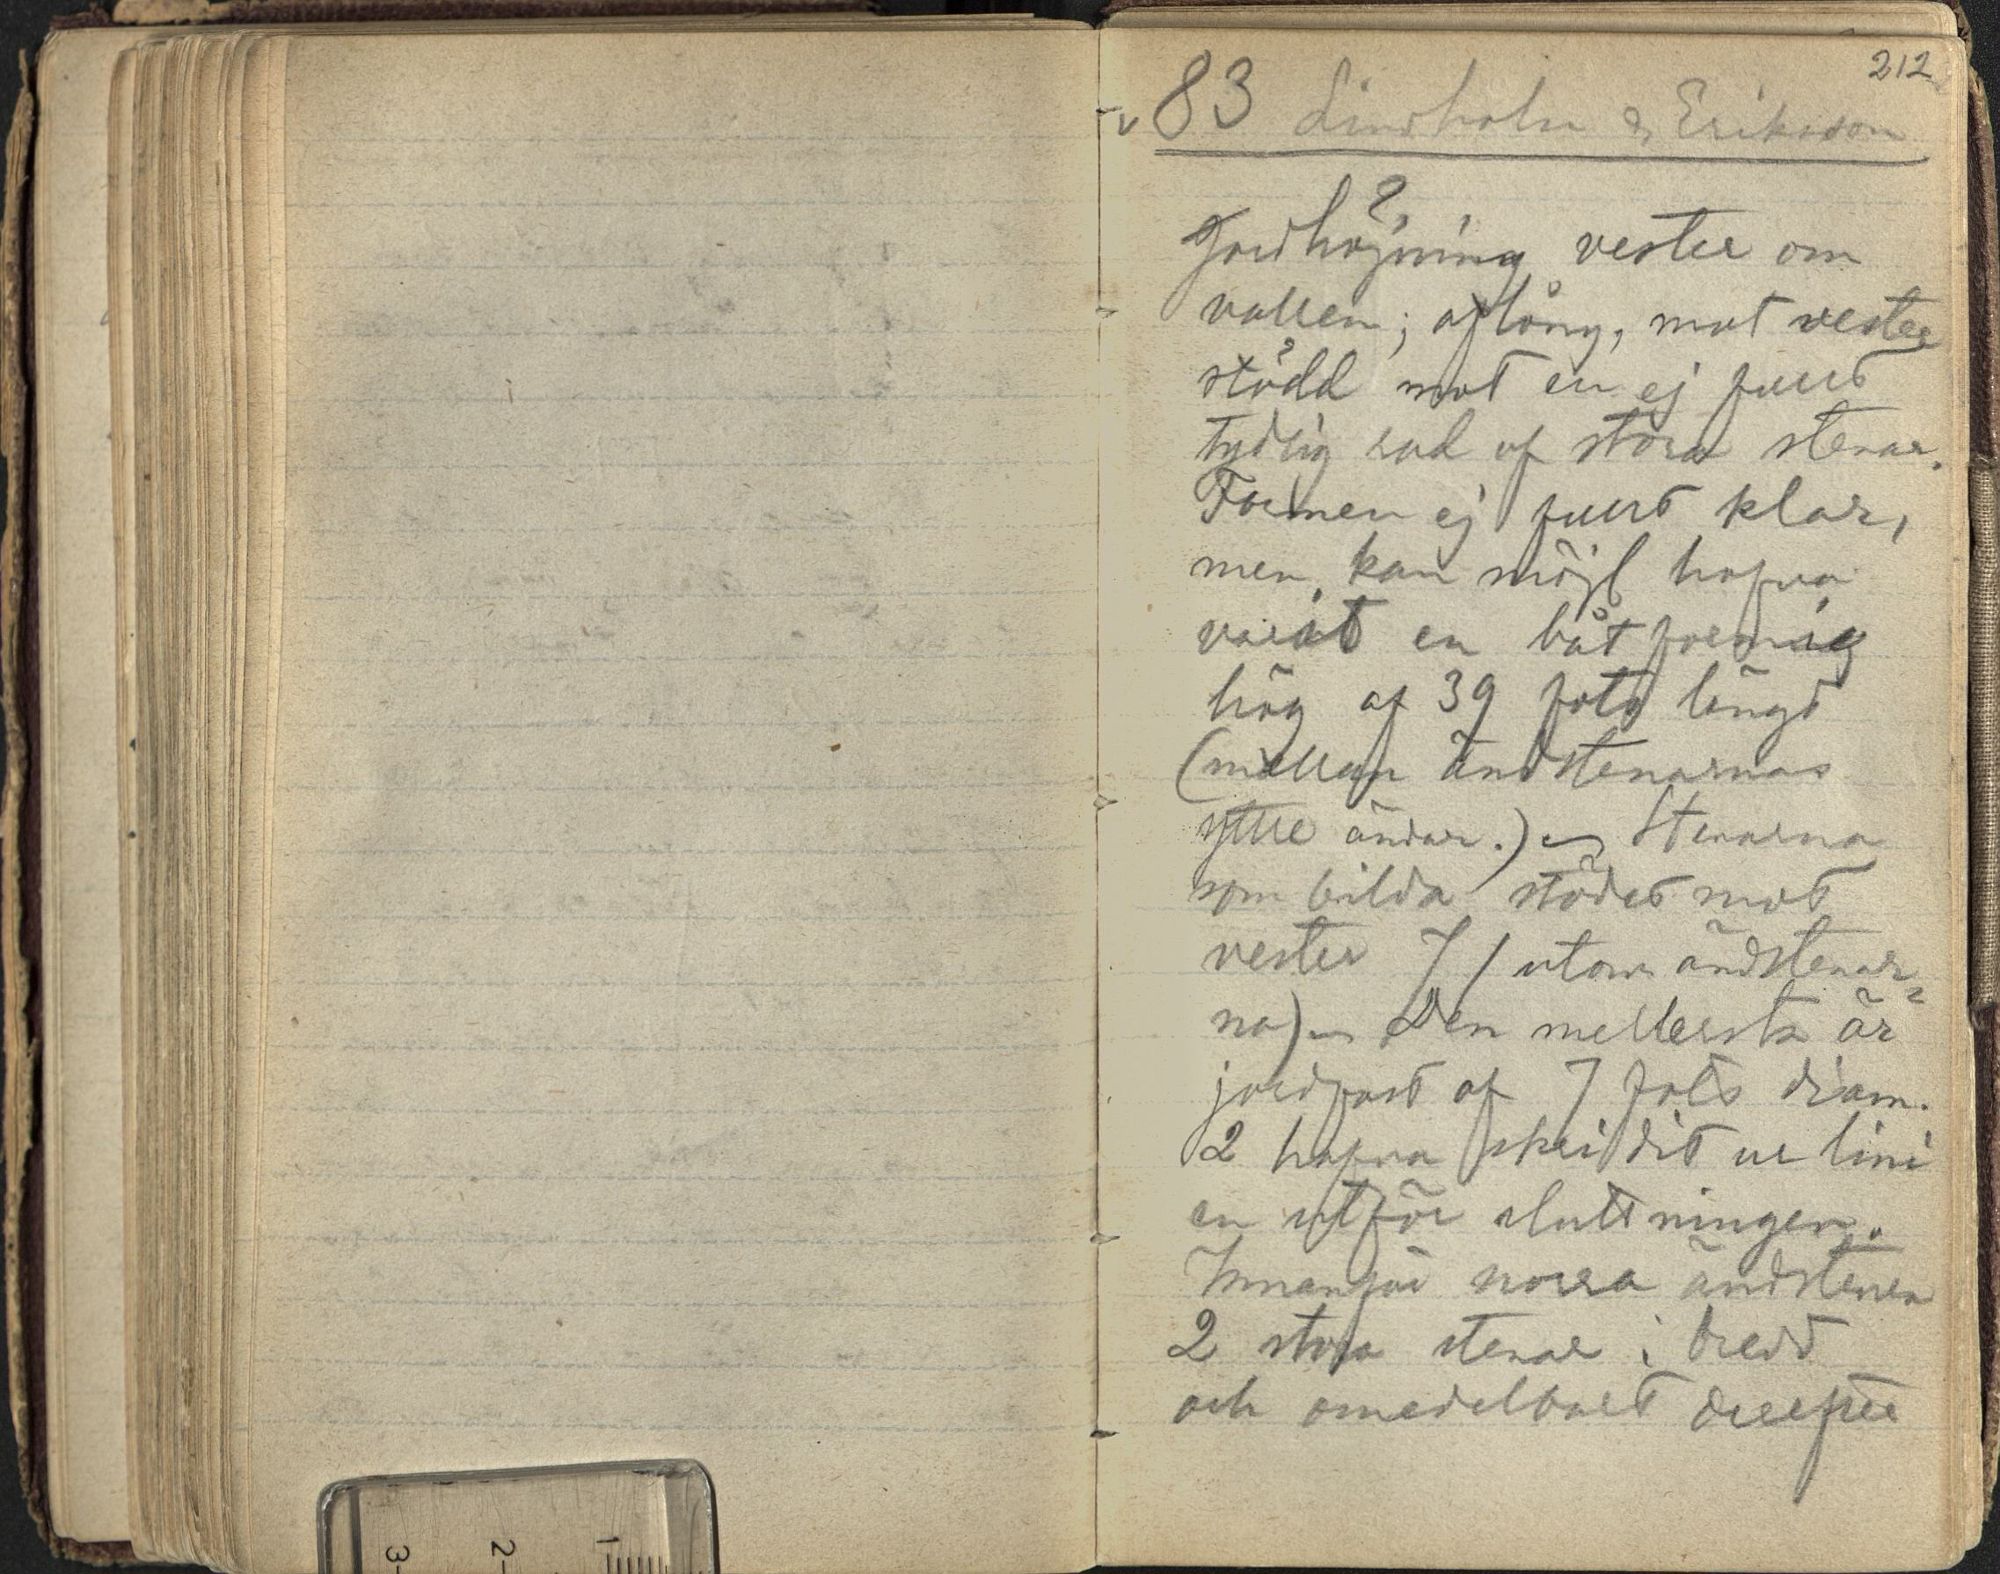 212
83 Lindholm & Eriksson
Jordhöjning vester om
vallen; aflång, mot vester
stödd mot en ej fullt
tydlig rad af stora stenar.
Formen ej fullt klar,
men kan möjl hafva
varit en båtformig
hög af 39 fots längd
(mellan ändstenarnas
yttre ändar.) – Stenarna
som bilda stödet mot
vester 7 (utom ändstenar-
na) – Den mellersta är
jordfast af 7 fots diam.
2 hafva skridit ur lini
en utför sluttningen.
Innanför norra ändstenen
2 stora stenar i bredd
och omedelbart derefter
3-
2-
1